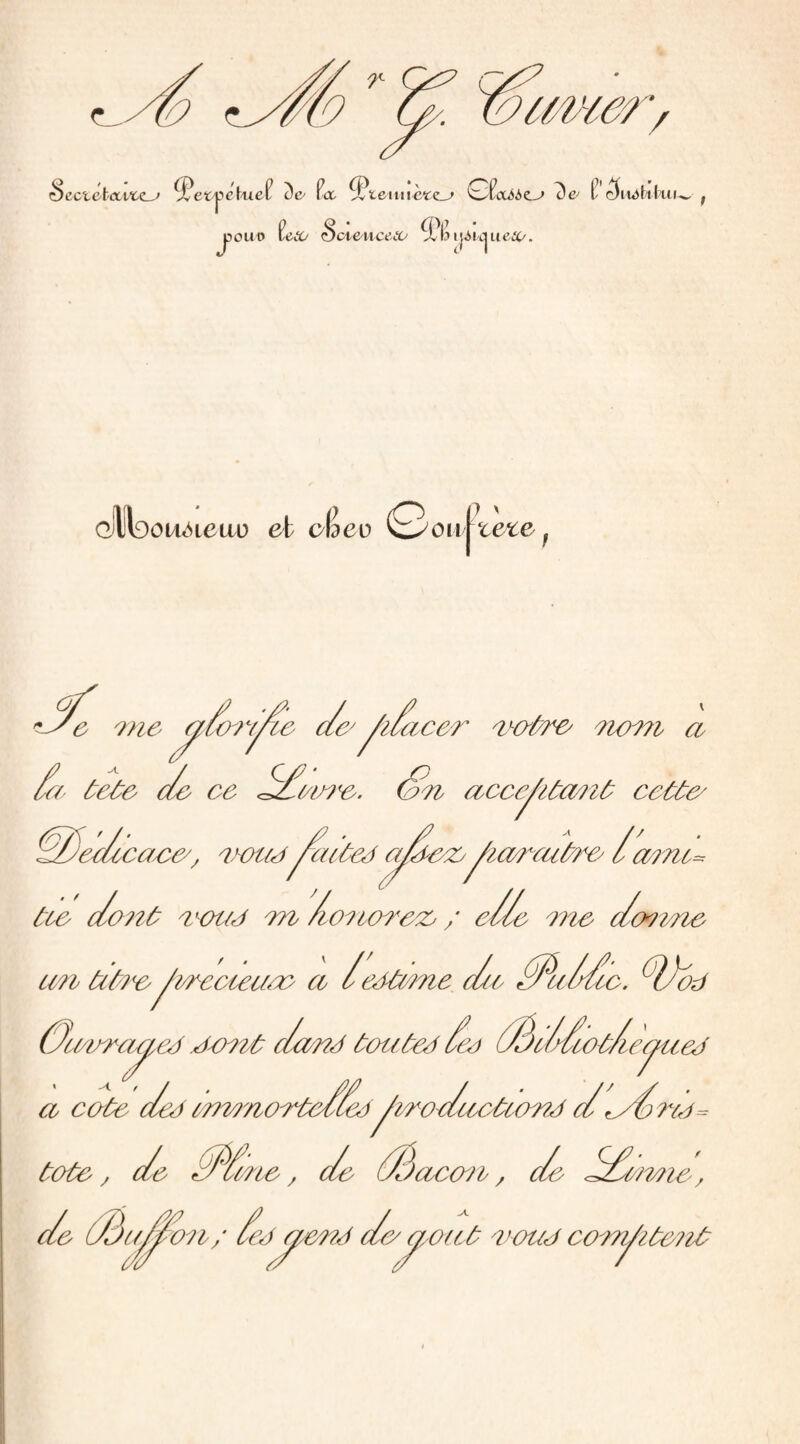 A Mr G. Cuvier,
Secrétaire Perpétuel de la Première Classe de l'Institut,
pour les Sciences Physiques.
Monsieur et cher Confrère,
Je me glorifie de placer votre nom à
la tête de ce Livre. En acceptant cette
Dédicace, vous faites assez paraître l'ami=
tié dont vous m'honorez ; elle me donne
un titre précieux à l'estime du Public. Vos
Ouvrages sont dans toutes les Bibliothèques
à côté des immortelles productions d'Aris=
tote, de Pline, de Bacon, de Linné,
de Buffon ; les gens de goût vous comptent